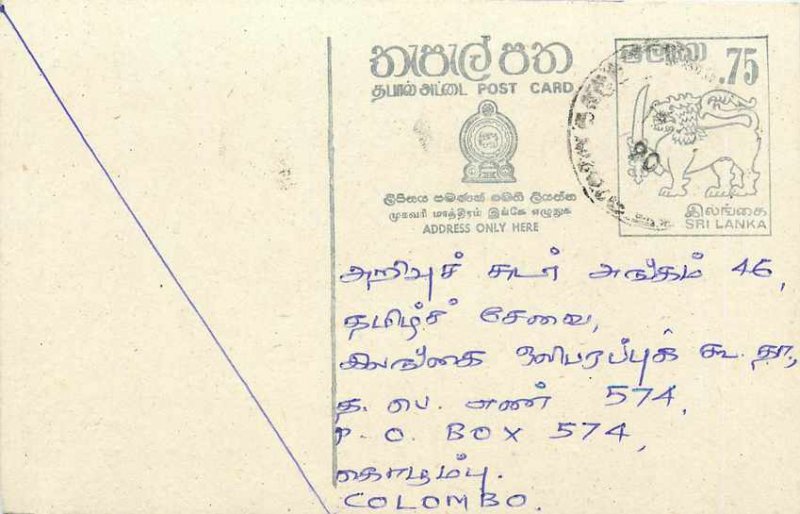 තැපැල් පත
தபால் அட்டை POST CARD
ලිපිනය පමණක් මෙහි ලියන්න
முகவரி மாத்திரம் இங்கே எழுதுக
ADDRESS ONLY HERE
.75
இலங்கை
SRI LANKA
அறிவுச் சுடர் அங்கம் 46,
தமிழ்ச் சேவை,
இலங்கை ஒலிபரப்புக் கூ.தா.,
த. பெ. எண் 574,
P. O. BOX 574,
கொழும்பு.
COLOMBO.